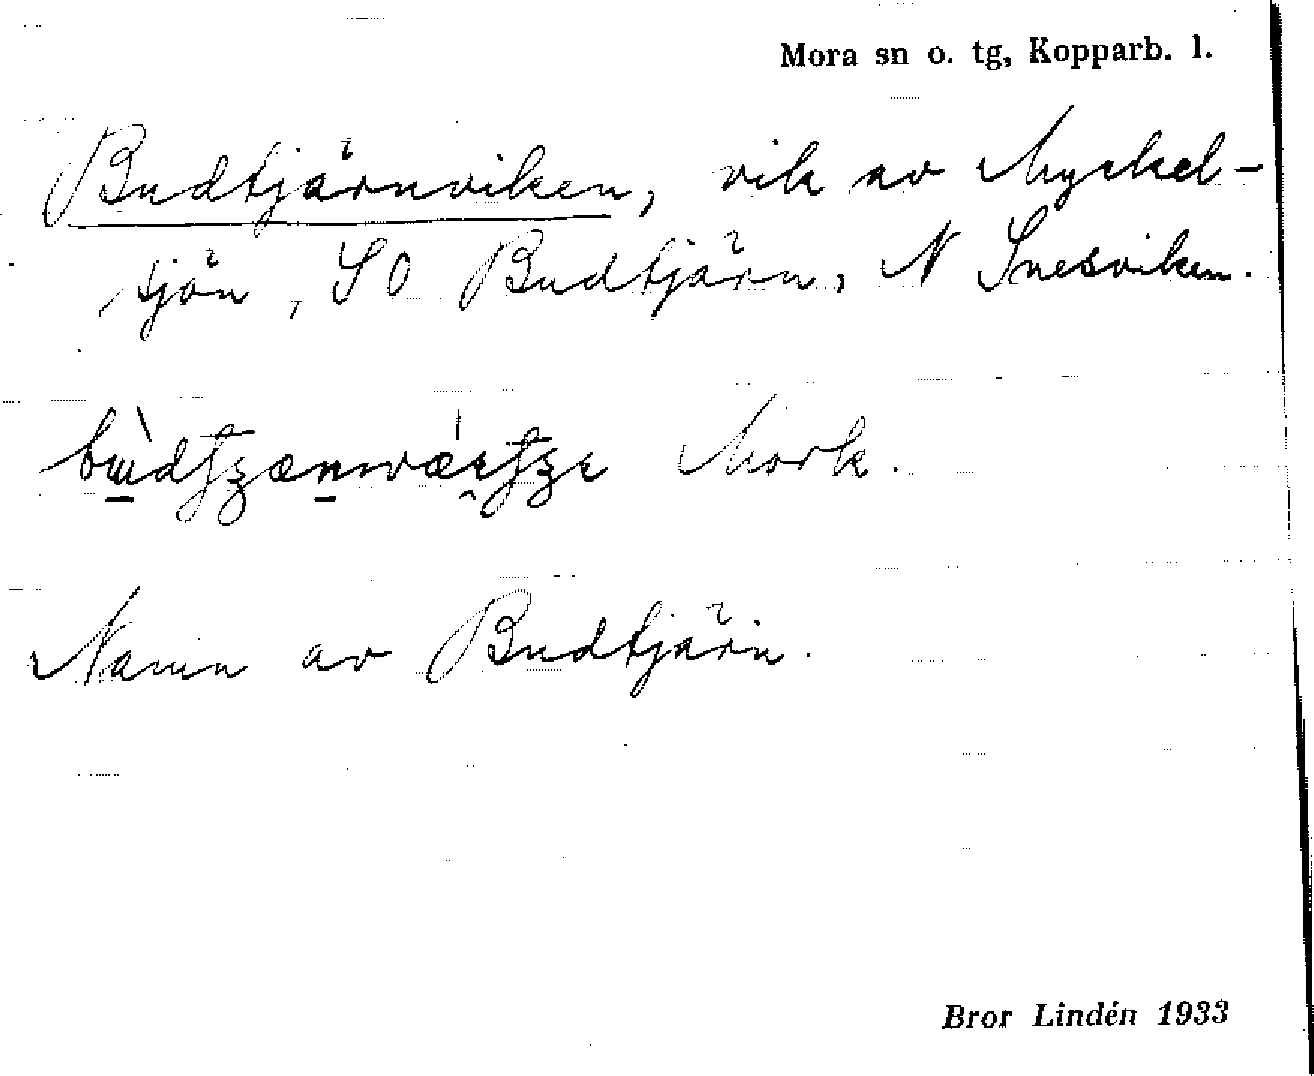 Mora sn o. tg, Kopparb. l.
Budtjärnviken, vik av Myckel-
sjön, SO Budtjärn, N Snesviken.
Mork.
Namn av Budtjärn.
Bror Lindén 1933